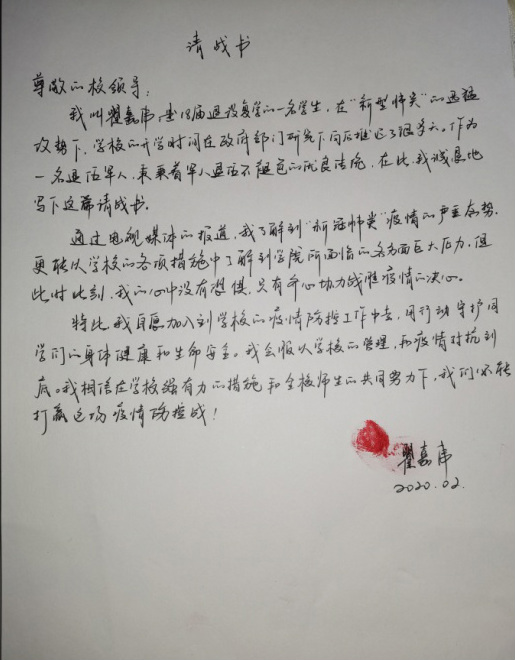 请战书
尊敬的校领导:
我叫瞿嘉伟,是18届退役复学的一名学生,在“新型肺炎”的迅猛
攻势下,学校的开学时间在政府部门研究下向后推迟了很多天。作为
一名退伍军人,秉承着军人退伍不褪色的优良传统,在此,我诚恳地
写下这篇请战书。
通过电视媒体的报道,我了解到“新冠肺炎”疫情的严重态势,
更能从学校的各项措施中了解到学院所面临的各方面巨大压力,但
此时此刻,我的心中没有畏惧,只有齐心协力战胜疫情的决心。
特此我自愿加入到学校的疫情防控工作中去,用行动守护同
学们的身体健康和生命安全。我会服从学校的管理,和疫情对抗到
底。我相信在学校强有力的措施和全校师生的共同努力下,我们必能
打赢这场疫情防控战!
瞿嘉伟
2020.02.